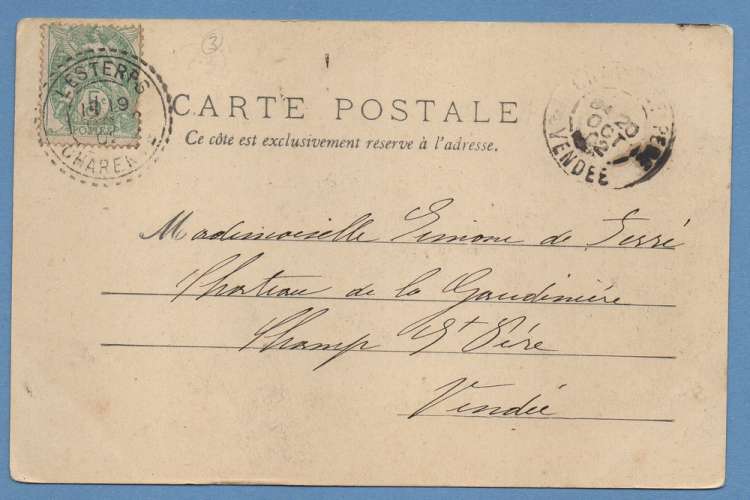 3
LESTERPS
19
CHAREN
CARTE POSTALE
Ce côté est exclusivement réservé à l'adresse.
20
OCT
VENDÉE
Mademoiselle Simone de Serré
Chateau de la Gaudinière
Champ St Père
Vendée